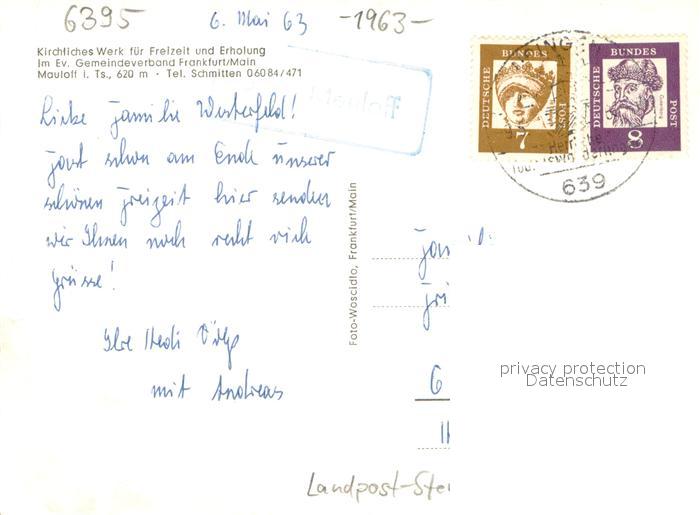 6395
6. Mai 63
-1963-
Kirchliches Werk für Freizeit und Erholung
im Ev. Gemeindeverband Frankfurt/Main
Mauloff i. Ts., 620 m · Tel. Schmitten 06084/471
Mauloff
Liebe Familie Westerfeld!
Fast schon am Ende unserer
schönen Freizeit hier senden
wir Ihnen noch recht viele
Grüsse!
Ihre Hedi
mit Andreas
Foto-Wascidlo, Frankfurt/Main
DEUTSCHE BUNDES POST
7
DEUTSCHE BUNDES POST
8
639
6
privacy protection
Datenschutz
Landpost-Ste